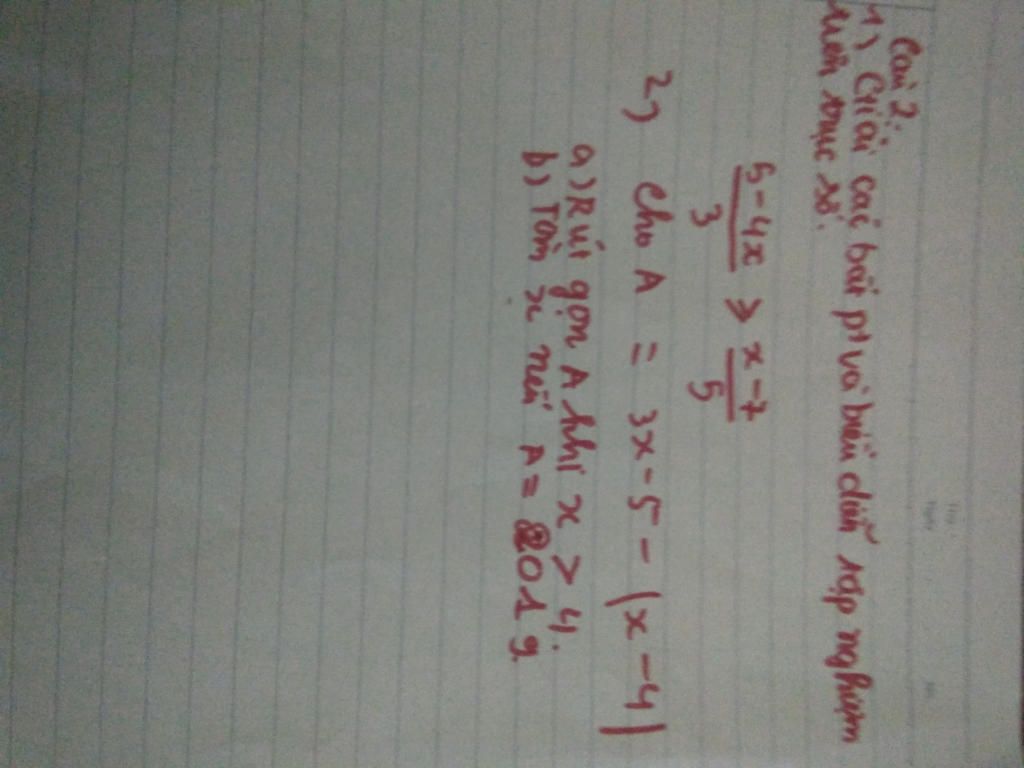 Câu 2:
1) Giải các bất pt và biểu diễn tập nghiệm
trên trục số.
5-4x / 3 ≥ x-7 / 5
2) Cho A = 3x-5-|x-4|
a) Rút gọn A khi x > 4.
b) Tìm x nếu A = 2019.